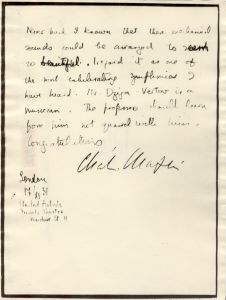 Never had I known that these mechanical
sounds could be arranged to seem
so beautiful. I regard it as one of
the most exhilarating symphonies I
have heard. Mr. Dziga Vertov is a
musician. The professors should learn
from him not quarrel with him.
Congratulations
Charles Chaplin
London
17/XI 31
United Artists